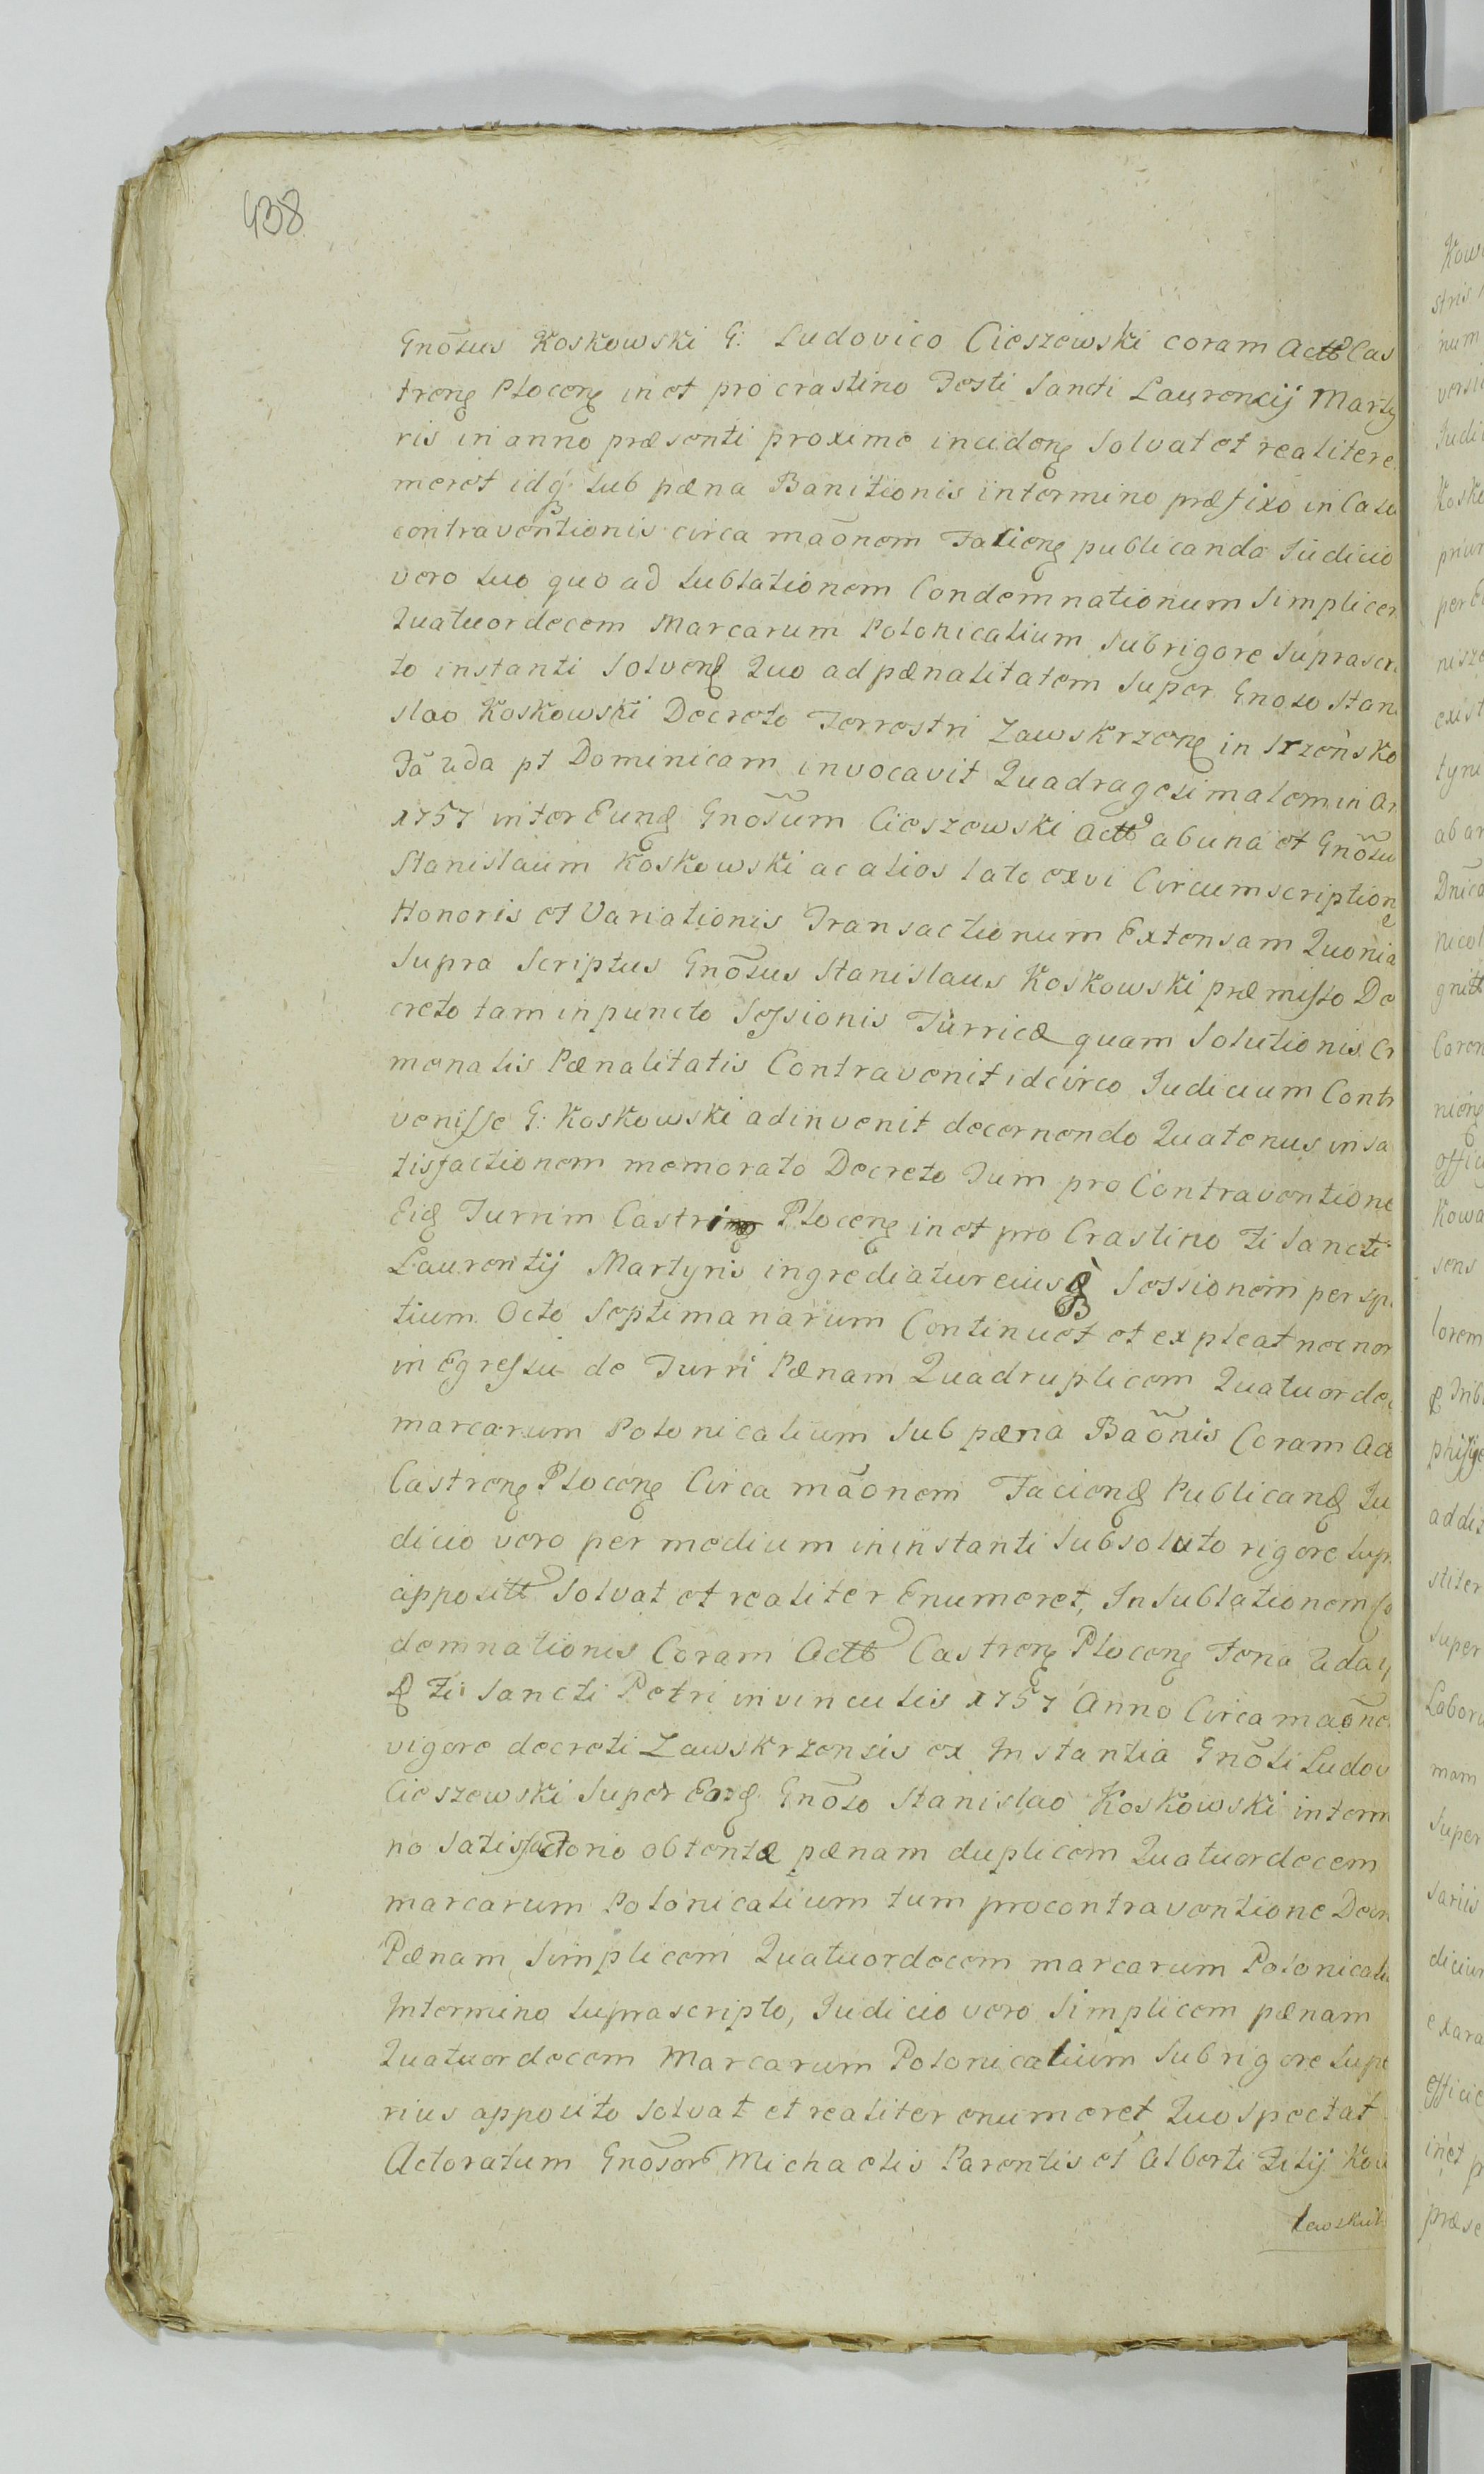 438
Gnõsus Koskowski G: Ludovico Cieszewski coram Actt Cas
treng Ploceng in et pro crastino Festi Sancti Laurencij Marty
ris in anno præsenti proxime incideng Solvat et realiter e
meret idq: sub pæna Banitionis in termino præfixo in Casu
contraventionis circa mãonem Facieng publicanda Judicio
vero suo quo ad sublationem Condemnationum Simplicem
Quatuordecem Marcarum Polonicalium sub rigore suprascri
to instanti Solveng Quo ad pænalitatem super Gnoso Stani
slao Koskowski Decreto Terrestri Zawskrzeng in Srzensko
Fã 2da pt Dominicam invocavit Quadragesimalem in An
1757 inter Eung Gnõsum Cieszewski Actt ab una et Gnõsu
Stanislaum Koskowski ac alios late exvi Circumscription
Honoris et Variationis Transactionum Extensam Quonia
Supra Scriptus Gnõsus Stanislaus Koskowski præmisso De
creto tam in puncto Sessionis Turricæ quam Solutionis Cr
menalis Pænalitatis Contravenit idcirco Judicium Contr
venisse G: Koskowski adinvenit decernendo Quatenus in sa
tisfactionem memorato Decreto Tum pro Contraventione
Eig Turrim Castring Ploceng in et pro Crastino Fi Sancti
Laurentij Martyris ingrediatur eiusq Sessionem per spa
tium Octo Septimanarum Continuet et expleat nec non
in Egressu de Turri Pænam Quadruplicem Quatuordec
marcarum Polonicalium sub pæna Baõnis Coram Act
Castreng Ploceng Circa mãonem Facieng Publicang Ju
dicio vero per medium in instanti sub soluto rigore sup
apposit Solvat et realiter Enumeret, In Sublationem Co
demnationis Coram Actt Castreng Ploceng Feria 2da
Fi Sancti Petri in vinculis 1757 Anno Circa mãone
vigore decreti Zawskrzensis ex Instantia Gnõsi Ludov
Cieszewski Super Eog Gnõso Stanislao Koskowski in term
no Satisfactorio obtentæ pænam duplicem Quatuordecem
marcarum Polonicalium tum pro contraventione Decr
Pænam Simplicem Quatuordecem marcarum Polonicaliu
In termino suprascripto, Judicio vero Simplicem pænam
Quatuordecem Marcarum Polonicalium Sub rigore supe
rius apposito Solvat et realiter enumeret Quo spectat
Actoratum Gnõsor Michaelis Parentis et Alberti Filij Kow
lewskich